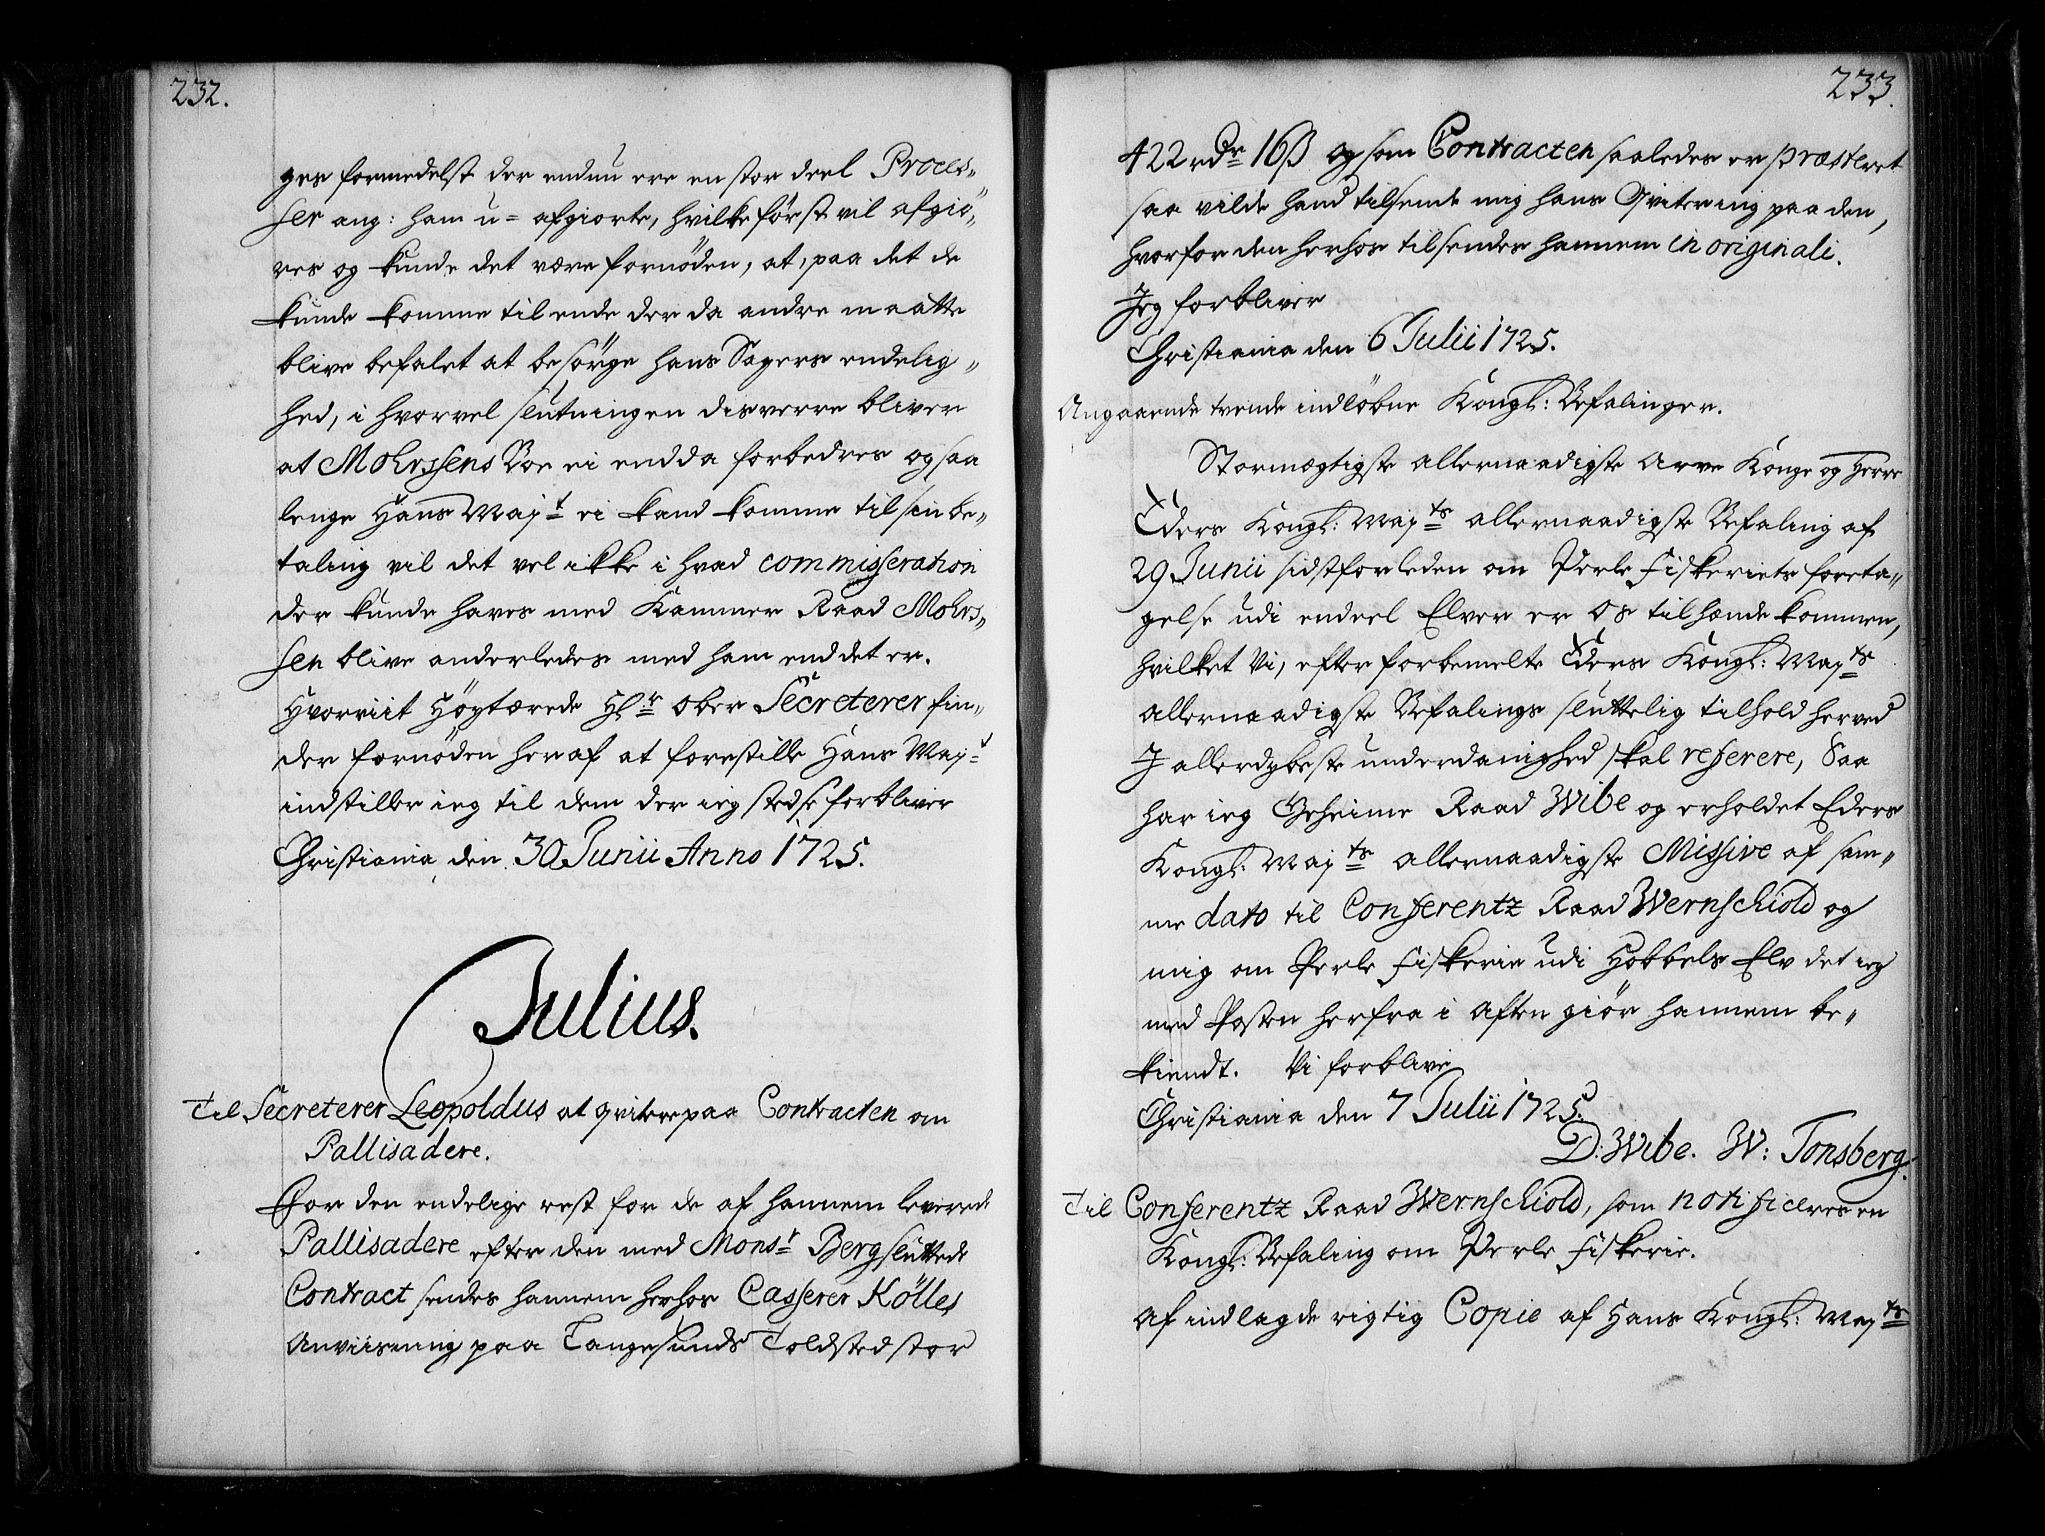 232.
ges formedelst der endnu ere en stor deel Proces„
ser ang: ham u= afgiorte, hvilke först vil afgiö„
res og kunde det være fornöden, at, paa det de
kunde komme til ende der da andre maatte
blive befalet at besörge hans Sagers endelig„
hed, i hvorvel slutningen disverre bliver
at Mohrssens Boe ei endda forbedres og saa
lenge Hans Maj.t ei kand komme til sin be„
taling vil det vel ikke i hvad commisseration
der kunde haves med Kammer Raad Mohrs„
sen blive anderledes med ham end det er.
Hvorviit Höytærede Hl.r Ober Secreterer fin„
der fornöden heraf at forestille Hans Maj.t
indstiller ieg til dem der ieg stedse forbliver
Christiania den 30 Junii Anno 1725.
Julius.
Til Secreterer Leopoldus at qvitere paa Contracten om
Pallisadere.
For den endelige rest for de af hannem leverede
Pallisadere efter den med Mons.r Berg sluttede
Contract sendes hannem herhos Casserer Kölles
Anviisning paa Langesunds Toldsted stor
233.
422 rdr 16 β og som Contracten saaledes er præsteret
saa vilde hand tilsende mig hans Qvitering paa den,
hvorfor den herhos tilsendes hannem in originali.
Jeg forbliver
Christiania den 6 Julii 1725.
Angaaende tvende indlöbne Kongl: Befalinger.
Stormægtigste allernaadigste Arve Konge og Herre
Eders Kongl: Maj.ts allernaadigste Befaling af
29 Junii sidstforleden om Perle Fiskeriets foreta„
gelse udi endeel Elver er os tilhænde kommen,
hvilket Vi, efter forbemelte Eders Kongl: Maj.ts
allernaadigste Befalings sluttelig tilhold herved
J allerdybeste underdanighed skal referere, Saa
har ieg Geheime Raad Wibe og erholdet Eders
Kongl: Maj.ts allernaadigste Missive af sam„
me dato til Conferentz Raad Wernschiold og
mig om Perle Fiskerie udi Hobbels Elv det ieg
med Posten herfra i Aften giör hannem be„
kiendt. Vi forblive
Christiania den 7 Julii 1725.
D: Wibe. W: Tonsberg.
Til Conferentz Raad Wernschiold, som notificeres en
Kongl: Befaling om Perle Fiskerie.
Af indlagde rigtig Copie af Hans Kongl: Maj.ts